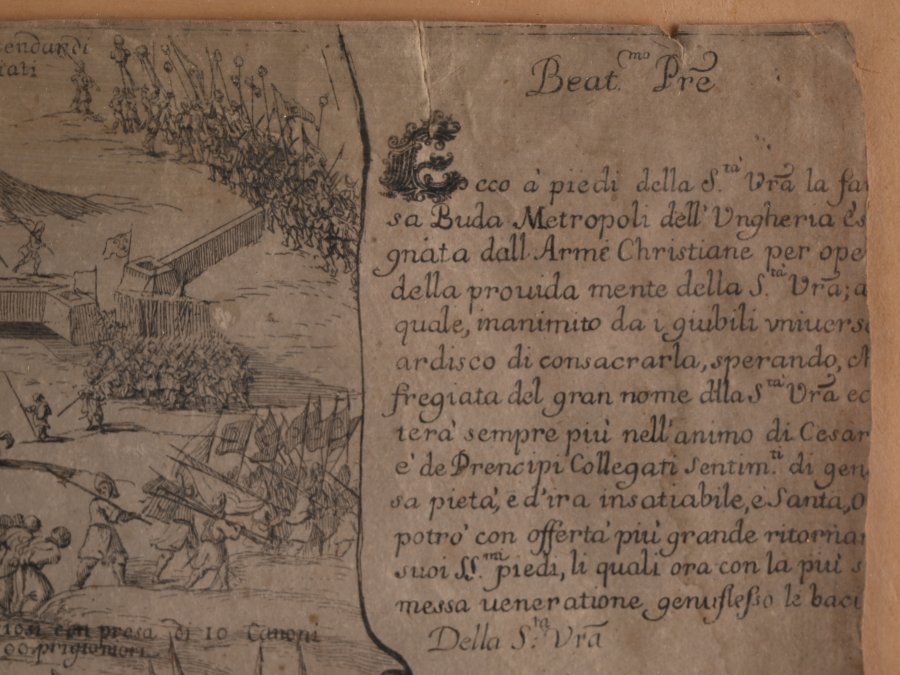 endandi
iati
Beat.mo Prē
Ecco à piedi della S.tà Vrā la fa
sa Buda Metropoli dell'Vngheria
gnata dall'Armi Christiane per ope
della prouida mente della S.tà Vrā; a
quale, inanimito da i giubili vniuers
ardisco di consacrarla, sperando, ch
fregiata del gran nome dlla S.tà Vrā ec
terà sempre più nell'animo di Cesar
e' de Prencipi Collegati Sentim.ti di gen
sa pietà, e d'ira insatiabile, e Santa, O
potrò con offerta più grande ritornar
suoi SS.mi piedi, li quali ora con la più s
messa ueneratione, genuflesso le baci
Della S.tà Vrā
iosi con presa di 10 Canoni
00 prigionieri